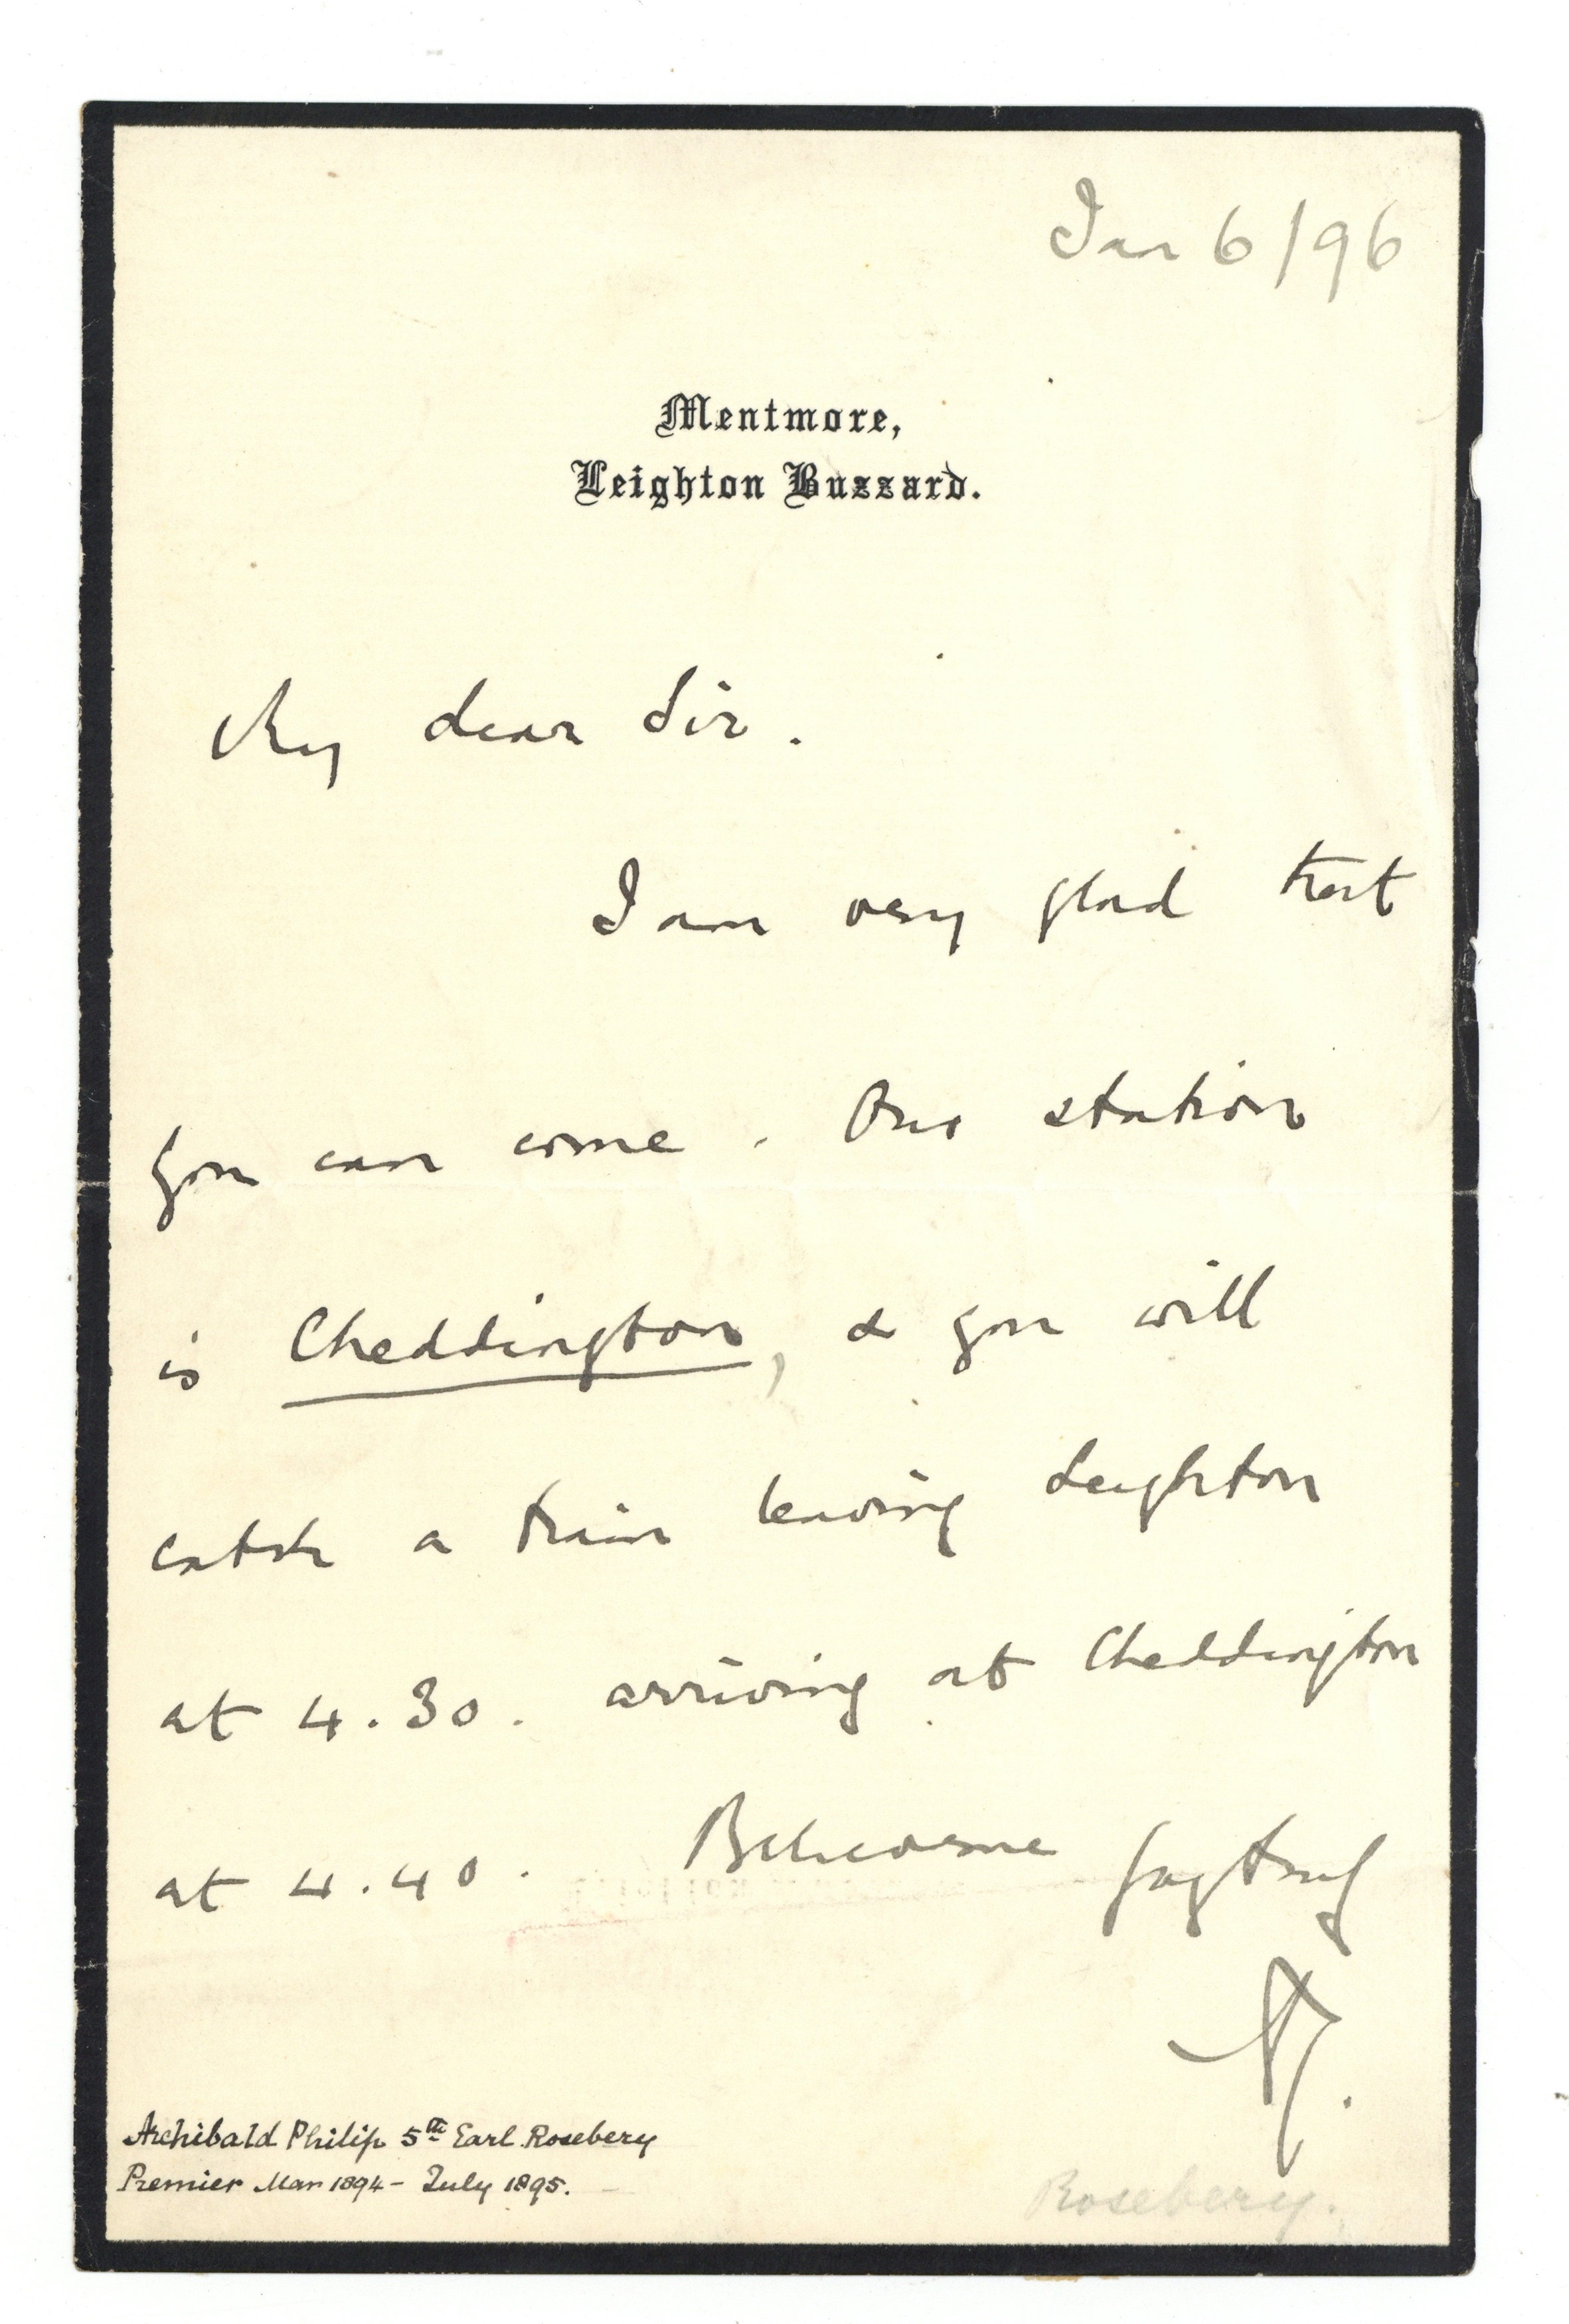 Jan 6/96
Mentmore,
Leighton Buzzard.
My dear Sir.
I am very glad that
you can come. Our station
is Cheddington, & you will
catch a train leaving Leighton
at 4.30. arriving at Cheddington
at 4.40. Believe me
Archibald Philip 5th Earl Rosebery
Premier Mar 1894 - July 1895.
Rosebery.